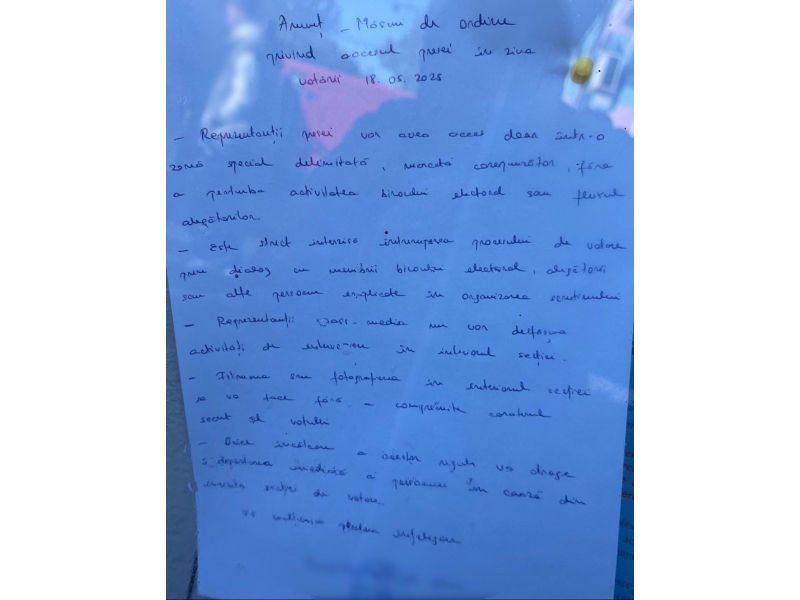 Anunț - Măsuri de ordine
privind accesul presei în ziua
votării 18.05.2025
- Reprezentanții presei vor avea acces doar într-o
zonă special delimitată, marcată corespunzător, fără
a perturba activitatea biroului electoral sau fluxul
alegătorilor.
- Este strict interzisă întreruperea procesului de votare
prin dialog cu membrii biroului electoral, alegătorii
sau alte persoane implicate în organizarea scrutinului
- Reprezentanții mass-media nu vor desfășura
activități de intervievare în interiorul secției.
- Filmarea sau fotografierea în interiorul secției
se va face fără a compromite caracterul
secret al votului
- Orice încălcare a acestor reguli va atrage
îndepărtarea imediată a persoanei în cauză din
incinta secției de votare
Vă mulțumim pentru înțelegere